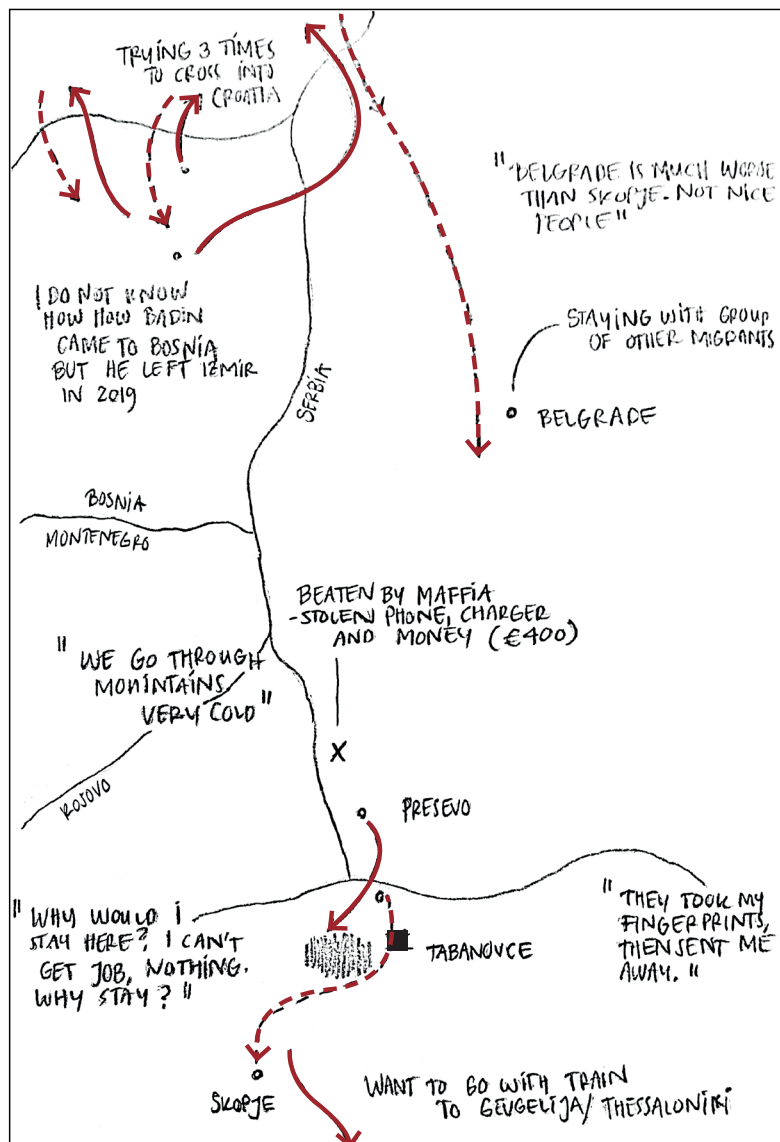 TRYING 3 TIMES
TO CROSS INTO
CROATIA
"BELGRADE IS MUCH WORSE
THAN SKOPJE. NOT NICE
PEOPLE"
I DO NOT KNOW
HOW HOW BADIN
CAME TO BOSNIA
BUT HE LEFT IZMIR
IN 2019
STAYING WITH GROUP
OF OTHER MIGRANTS
BELGRADE
SERBIA
BOSNIA
MONTENEGRO
BEATEN BY MAFFIA
-STOLEN PHONE, CHARGER
AND MONEY (€400)
"WE GO THROUGH
MOUINTAINS
VERY COLD"
X
KOSOVO
PRESEVO
"WHY WOULD I
STAY HERE? I CAN'T
GET JOB, NOTHING.
WHY STAY?"
TABANOVCE
"THEY TOOK MY
FINGERPRINTS,
THEN SENT ME
AWAY."
SKOPJE
WANT TO GO WITH TRAIN
TO GEVGELIJA/THESSALONIKI